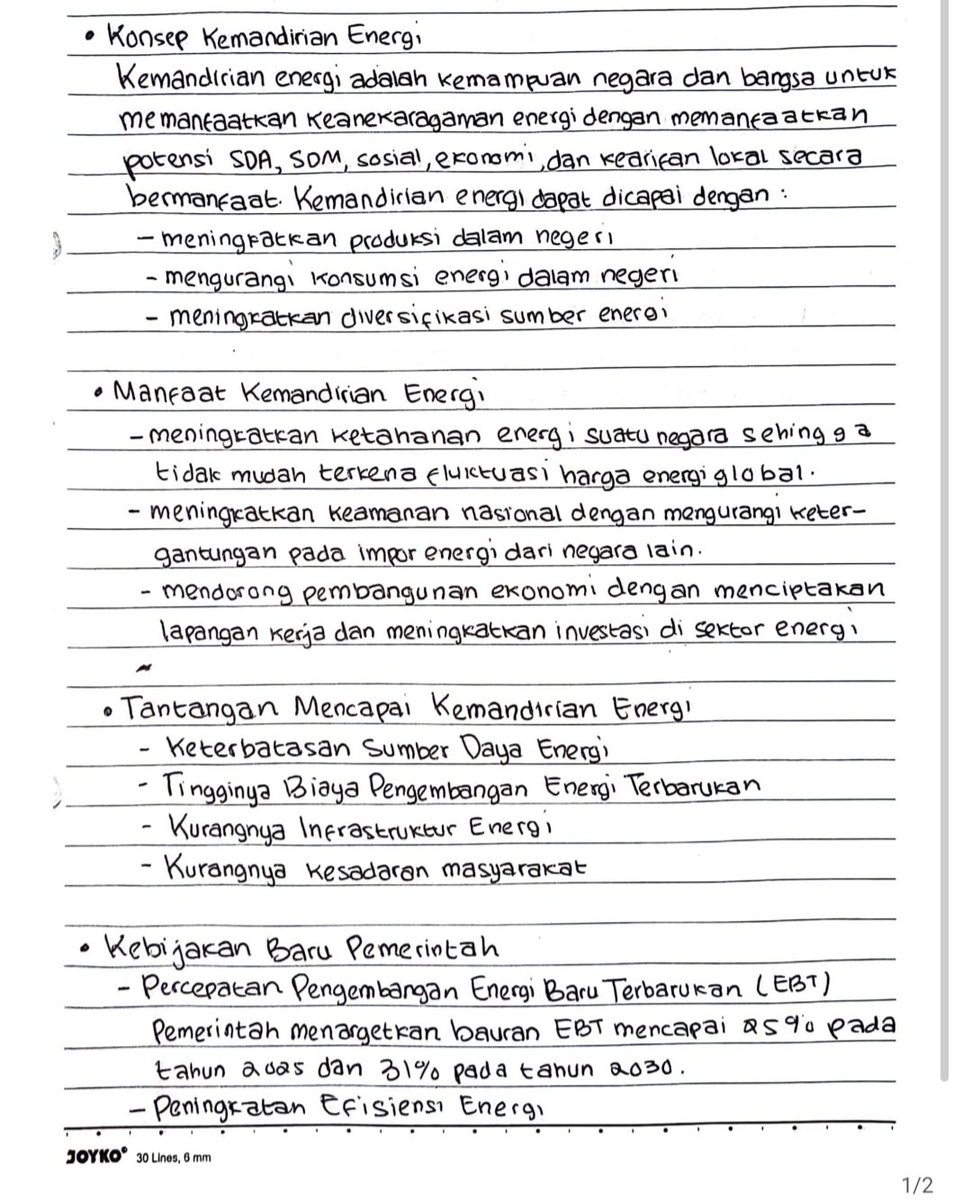 • Konsep Kemandirian Energi
Kemandirian energi adalah kemampuan negara dan bangsa untuk
memanfaatkan keanekaragaman energi dengan memanfaatkan
potensi SDA, SDM, sosial, ekonomi, dan kearifan lokal secara
bermanfaat. Kemandirian energi dapat dicapai dengan :
- meningkatkan produksi dalam negeri
- mengurangi konsumsi energi dalam negeri
- meningkatkan diversifikasi sumber energi
• Manfaat Kemandirian Energi
- meningkatkan ketahanan energi suatu negara sehingga
tidak mudah terkena fluktuasi harga energi global.
- meningkatkan keamanan nasional dengan mengurangi keter-
gantungan pada impor energi dari negara lain.
- mendorong pembangunan ekonomi dengan menciptakan
lapangan kerja dan meningkatkan investasi di sektor energi
• Tantangan Mencapai Kemandirian Energi
- Keterbatasan Sumber Daya Energi
- Tingginya Biaya Pengembangan Energi Terbarukan
- Kurangnya Infrastruktur Energi
- Kurangnya kesadaran masyarakat
• Kebijakan Baru Pemerintah
- Percepatan Pengembangan Energi Baru Terbarukan (EBT)
Pemerintah menargetkan bauran EBT mencapai 25% pada
tahun 2025 dan 31% pada tahun 2030.
- Peningkatan Efisiensi Energi
JOYKO® 30 Lines, 6 mm
1/2